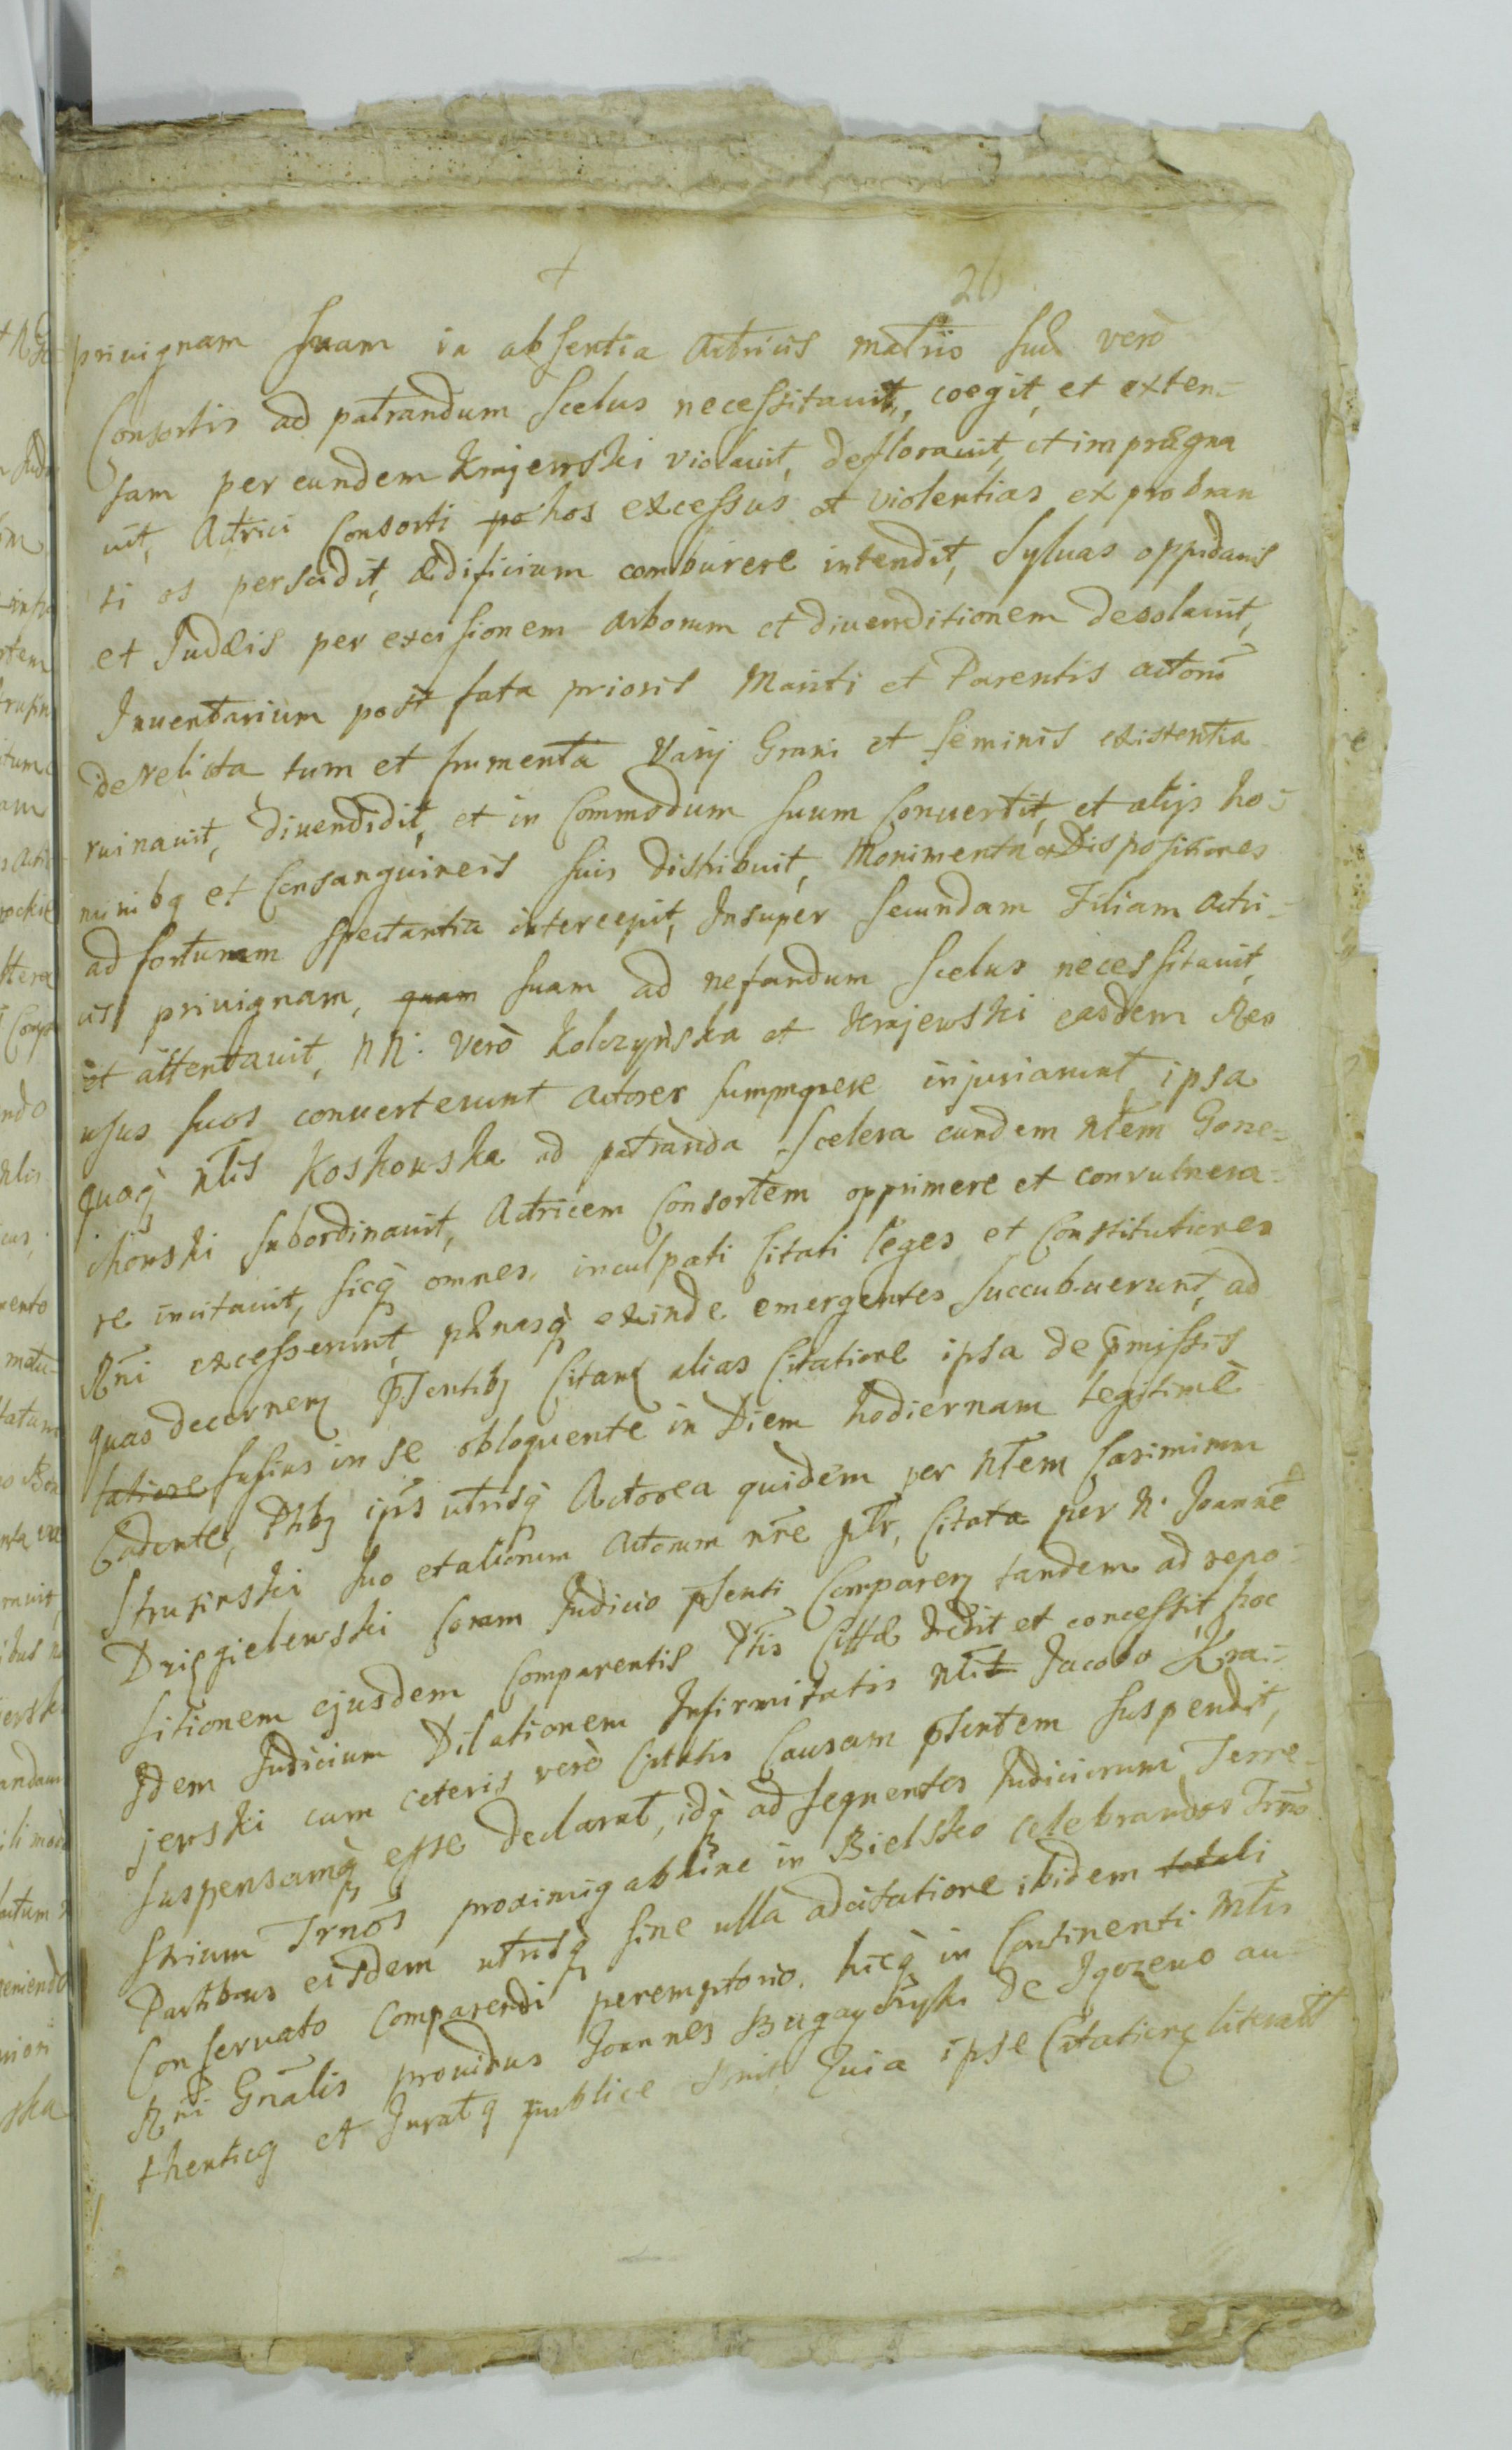 26
privignam suam in absentia Actricis matris suæ verò
Consortis ad patrandum scelus necessitavit, coegit, et exten-
sam per eundem Krajewski violavit, defloravit, et imprægna
vit, Actrici Consorti po hos excessus et violentias exprobran
ti os perscidit, ædificium comburere intendit, Sylvas oppidanis
et Judæis per excisionem arborum et divenditionem desolavit,
Inventarium post fata prioris Mariti et Parentis actorū
derelicta tum et frumenta varij Grani et seminis existentia
ruinavit, divendidit, et in Commodum suum convertit, et alijs ho-
minibq et Consanguineis suis distribuit, Monimenta et Dispositiones
ad fortunam spectantia intercepit, Insuper secundam Filiam Actri-
cis privignam, quam suam ad nefandum scelus necessitavit,
et attentavit, NN. verò Kolczyńska et Krajewski easdem Res
usus suos converterunt Actores summopere injuriarunt, ipsa
quoq̀ Nlis Koskowska ad patranda scelera eundem Nlem Gorze-
chowski subordinavit, Actricem Consortem opprimere et convulnera-
re incitavit, sicq̀ omnes inculpati citati leges et Constitutiones
Rni excesserunt, pænasq̀ exinde emergentes succubuerunt, ad
quas decernen̄ p̄sentibq Citan̄ alias Citatione ipsa de p̄missis
tatione fusius in se obloquente in Diem hodiernam legitimè
Cadente, Ptibq ip̄s utrisq̀ Actorea quidem per Nlem Casimirum
Strusinski suo et aliorum Actorum nr̄e ptr, Citata per N. Joannē
Dzięgielewski coram Judicio p̄senti Comparen̄ tandem ad repo-
sitionem ejusdem Comparentis Ptis Cittæ dedit et concessit hoc
Idem Judicium Dilationem Infirmitatis Nli Jacobo Kra-
jewski cum ceteris verò Citatis Causam p̄sentem suspendit,
suspensamq̀ esse declarat, idq̀ ad sequentes Judiciorum Terre-
strium Trnōs proximiq abhinc in Bielsko celebrandos Trno
Partibus eisdem utrisq̀ sine ulla adcitatione ibidem totali
Conservato Comparendi peremptorio. hicq̀ in Continenti Mtis
Rni Gnālis providus Joannes Bugayczyk de Jgozewo au-
thenticq et Juratq publice Quia ipse Citatione literalt